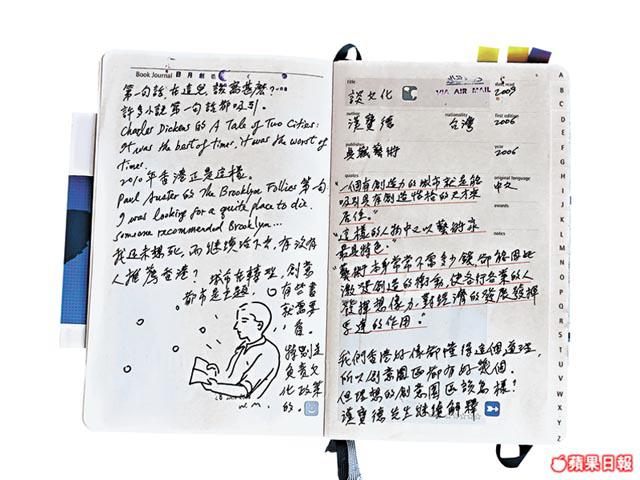 Book Journal 日月創意
第一句話,在這兒該寫甚麼?
許多小說第一句話都吸引。
Charles Dickens 的 A Tale of Two Cities:
It was the best of times. it was the worst of
times.
2010年香港正是這樣。
Paul Auster 的 The Brooklyn Follies 第一句
I was looking for a quite place to die.
someone recommended Brooklyn...
我还未想死,而继续活下去,有沒有
人推薦香港? 城市在轉型,創意
都市是主題。
有些書
就需要
看。
特別是
負責文
化政策
的。
title
談文化
VIA AIR MAIL
date read
2009
漢寶德
nationality
台灣
first edition
2006
publisher
典藏藝術
year
2006
quotes
original language
中文
awards
notes
"一個有創造力的城市就是能
吸引具有創造性格的天才來
居住。"
"這樣的人物中又以藝術家
最具特色。"
"藝術本身常常不需多少錢,卻能因此
激發創造的衝動,使各行各業的人
發揮想像力,對經濟的發展發揮
學造的作用。"
我們香港好像都懂得這個道理,
所以創意園區都有好幾個。
但理想的創意園區該怎樣?
漢寶德先生继续解釋
A
B
C
D
E
F
G
H
I
J
K
L
M
N
O
P
Q
R
S
T
U
V
W
X
Y
Z
蘋果日報